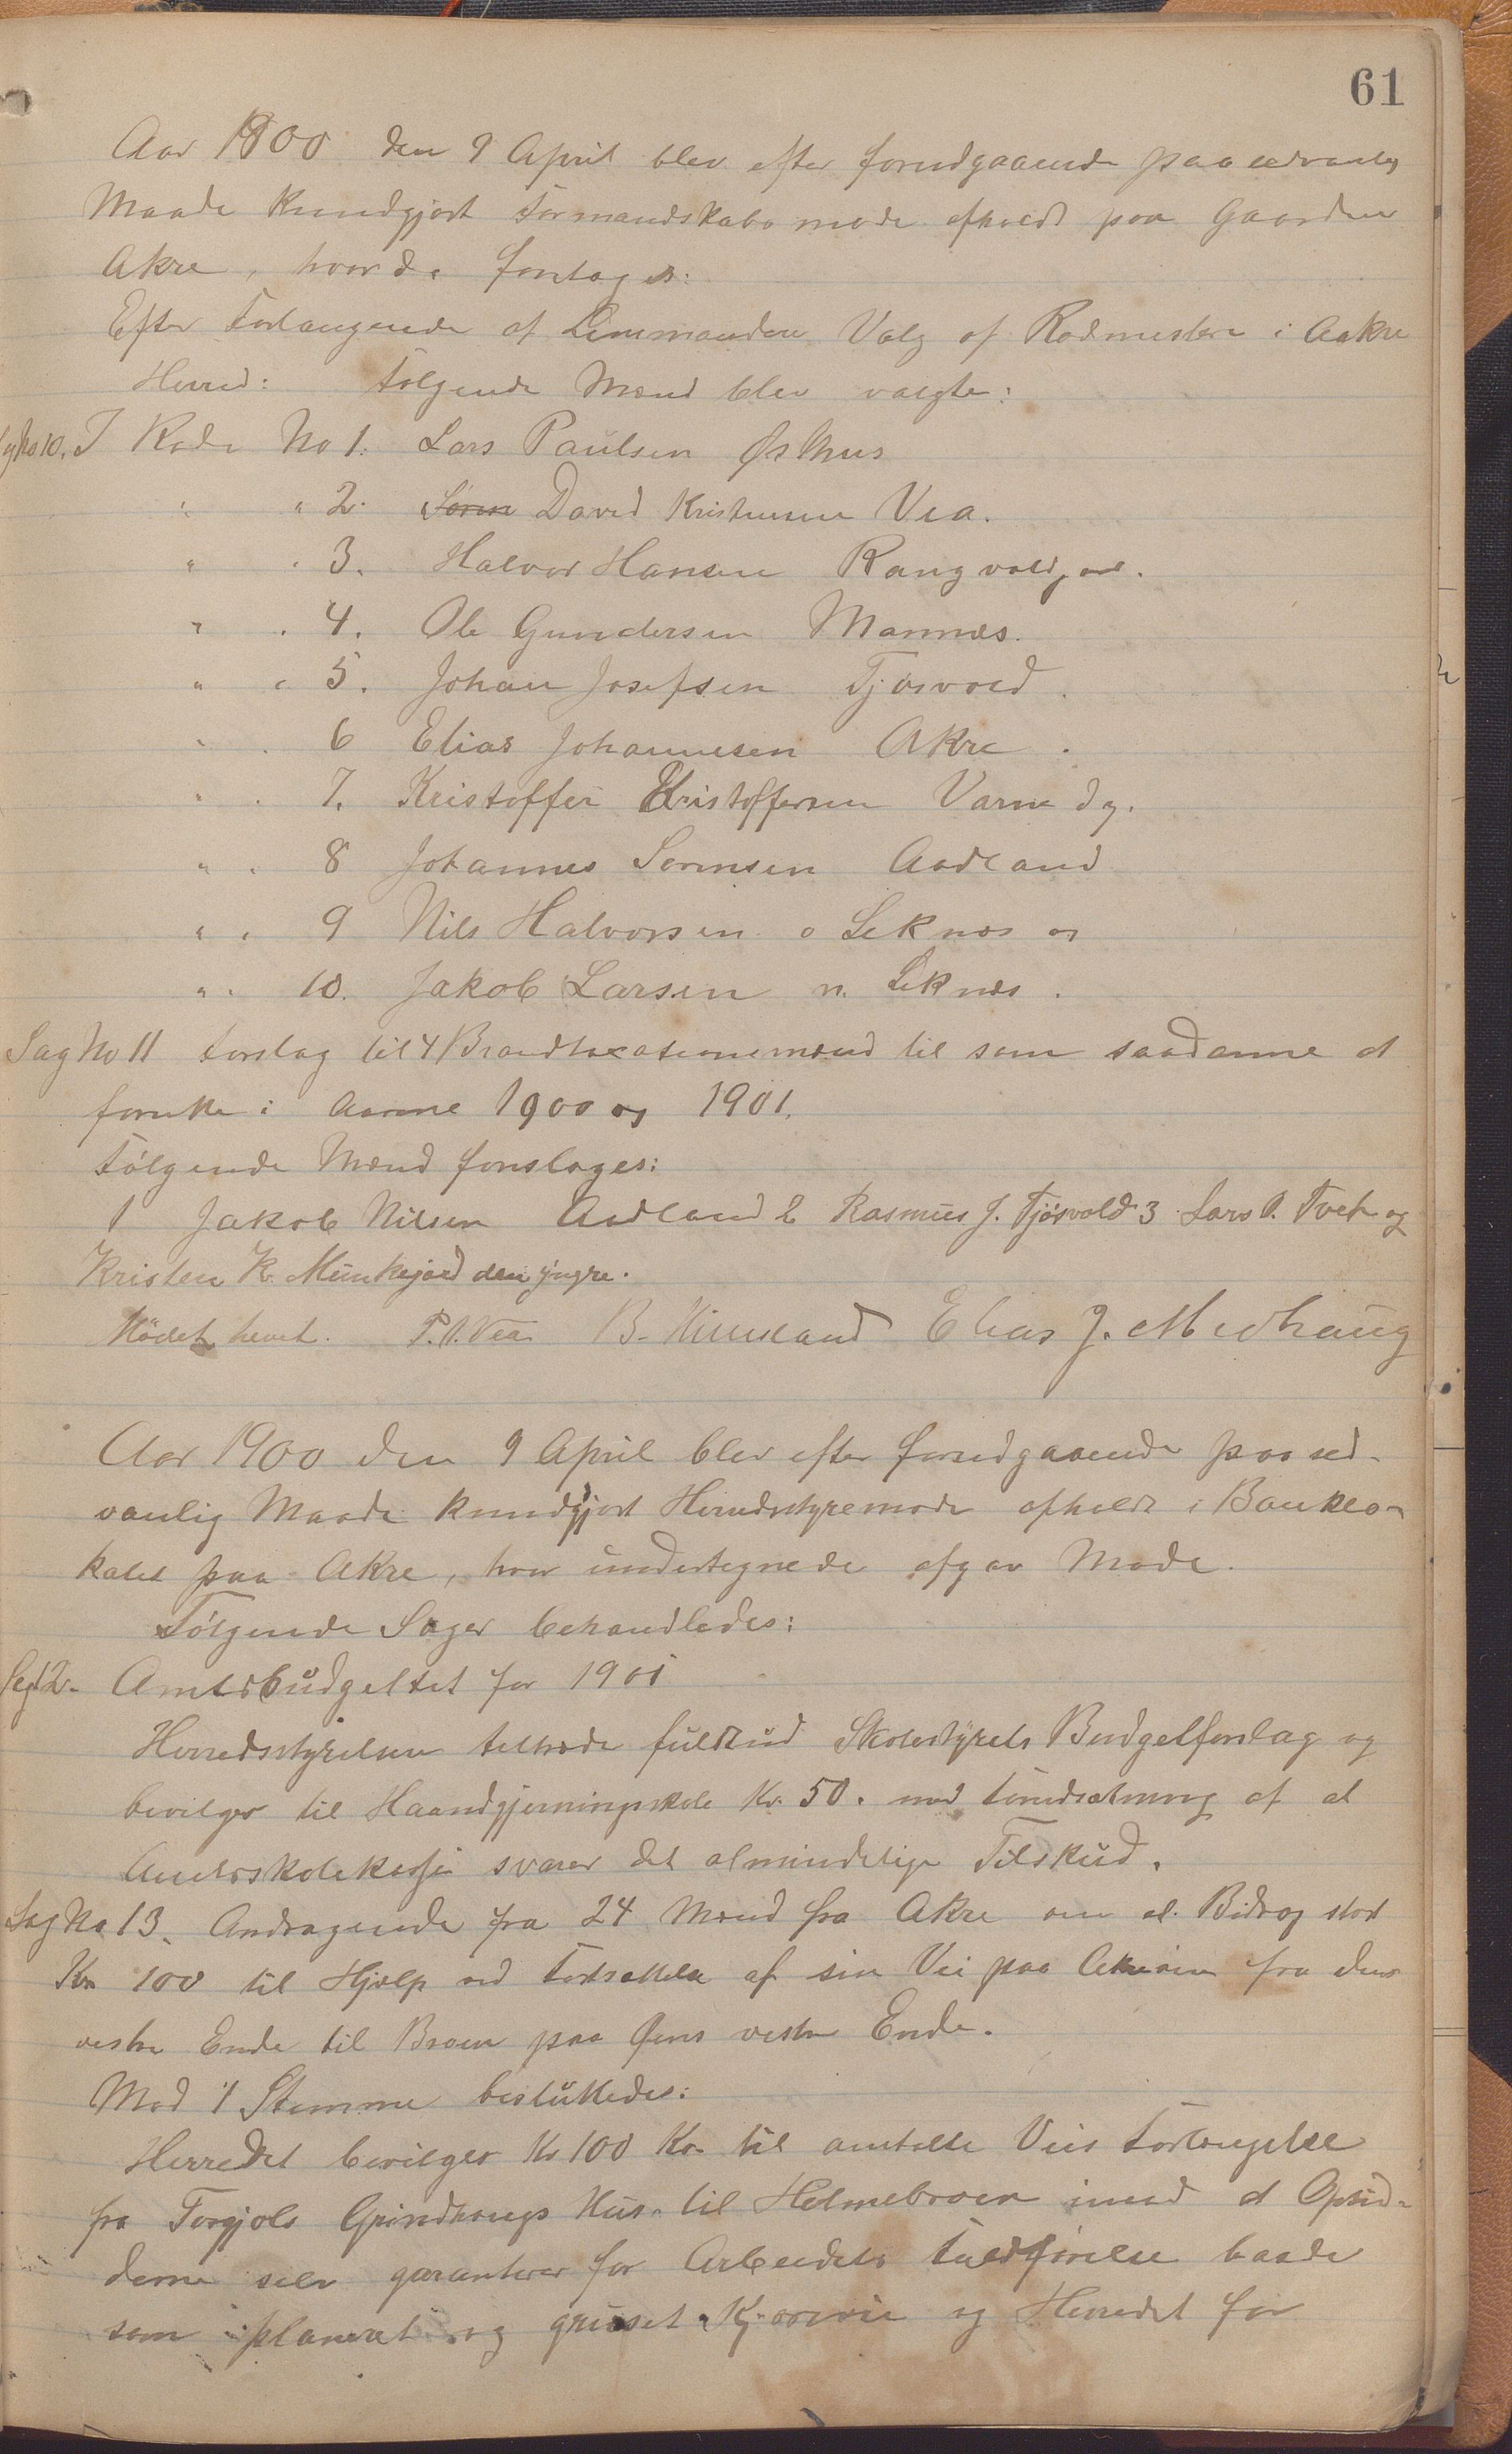 61
Aar 1900 den 9 April blev efter forudgaaende paa sedvanlig
Maade kundgjort Formandskabsmøde afholdt paa Gaarden
Akre, hvor da foretoges:
Efter Forlangende af Lensmanden Valg af Rodmestere i Aakre
Herred: Følgende Mænd blev valgte:
Sag No 10. I Rode No 1. Lars Paulsen Østhus
" " 2. Søren David Kristensen Vea.
" " 3. Halvor Hansen Rangvaldjord.
" " 4. Ole Gundersen Mannes.
" " 5. Johan Josefsen Tjøsvold.
" " 6 Elias Johannesen Akre.
" " 7. Kristoffer Kristoffersen Varne dy.
" " 8 Johannes Sørensen Aadland
" " 9 Nils Halvorsen o Seknes og
" " 10. Jakob Larsen n. Seknes.
Sag No 11 Forslag til 4 Brandtaxationsmænd til som saadanne at
forrette i Aarene 1900 og 1901.
Følgende Mænd foreslages:
1 Jakob Nilsen Aadland 2 Rasmus J. Tjøsvold 3 Lars P. Tveit og
Kristen K. Munkejord den yngre.
Mødet hevet. P. J. Vea B. Hemland Elias J. Medhaug
Aar 1900 den 9 April blev efter forudgaaende paa sed-
vanlig Maade kundgjort Herredsstyremøde afholdt i Banklo-
kalet paa Akre, hvor undertegnede afgav Møde.
Følgende Sager behandledes:
Sag 12. Amtsbudgettet for 1901
Herredsstyrelsen tiltræde fuldtud Skolestyrets Budgetforslag og
bevilger til Haandgjerningsskole Kr. 50. med Forudsætning af at
Amtsskolekassen svarer det almindelige Tilskud.
Sag No 13. Andragende fra 24 Mænd fra Akre om et Bidrag stort
Kr 100 til Hjælp ved Fortsættelse af sin Vei paa Akreøen fra dens
vestre Ende til Broen paa Øens vestre Ende.
Mod 1 Stemme besluttedes:
Herredet bevilger Kr 100 Kr. til omtalte Veis Forlængelse
fra Torgjols Grindhaugs Hus til Holmebroen imod at Opsid-
derne selv garanterer for Arbeidets Fuldførelse baade
som planeret og gruset Kjørevei og Herredet for